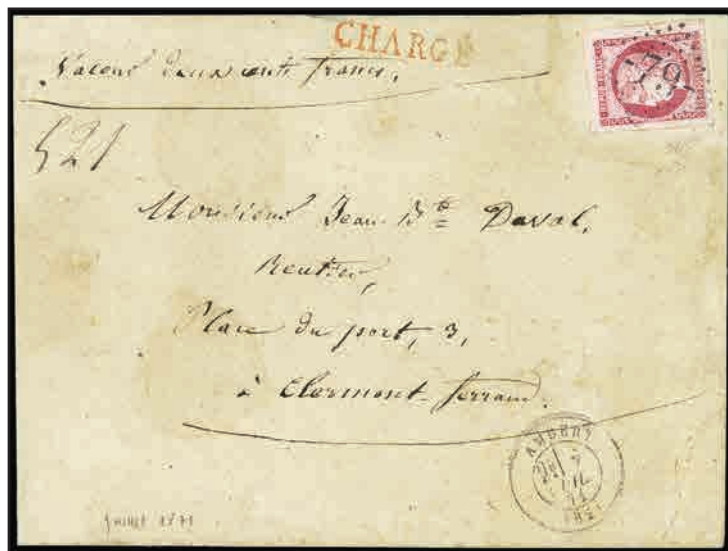 CHARGÉ
Valeur deux cents francs.
79
REPUB. FRANC.
521
Monsieur Jean Bte Daval,
Rentier,
Place du port, 3,
à Clermont-Ferrand.
AMBERT
7
JUIL.
71
Juillet 1871